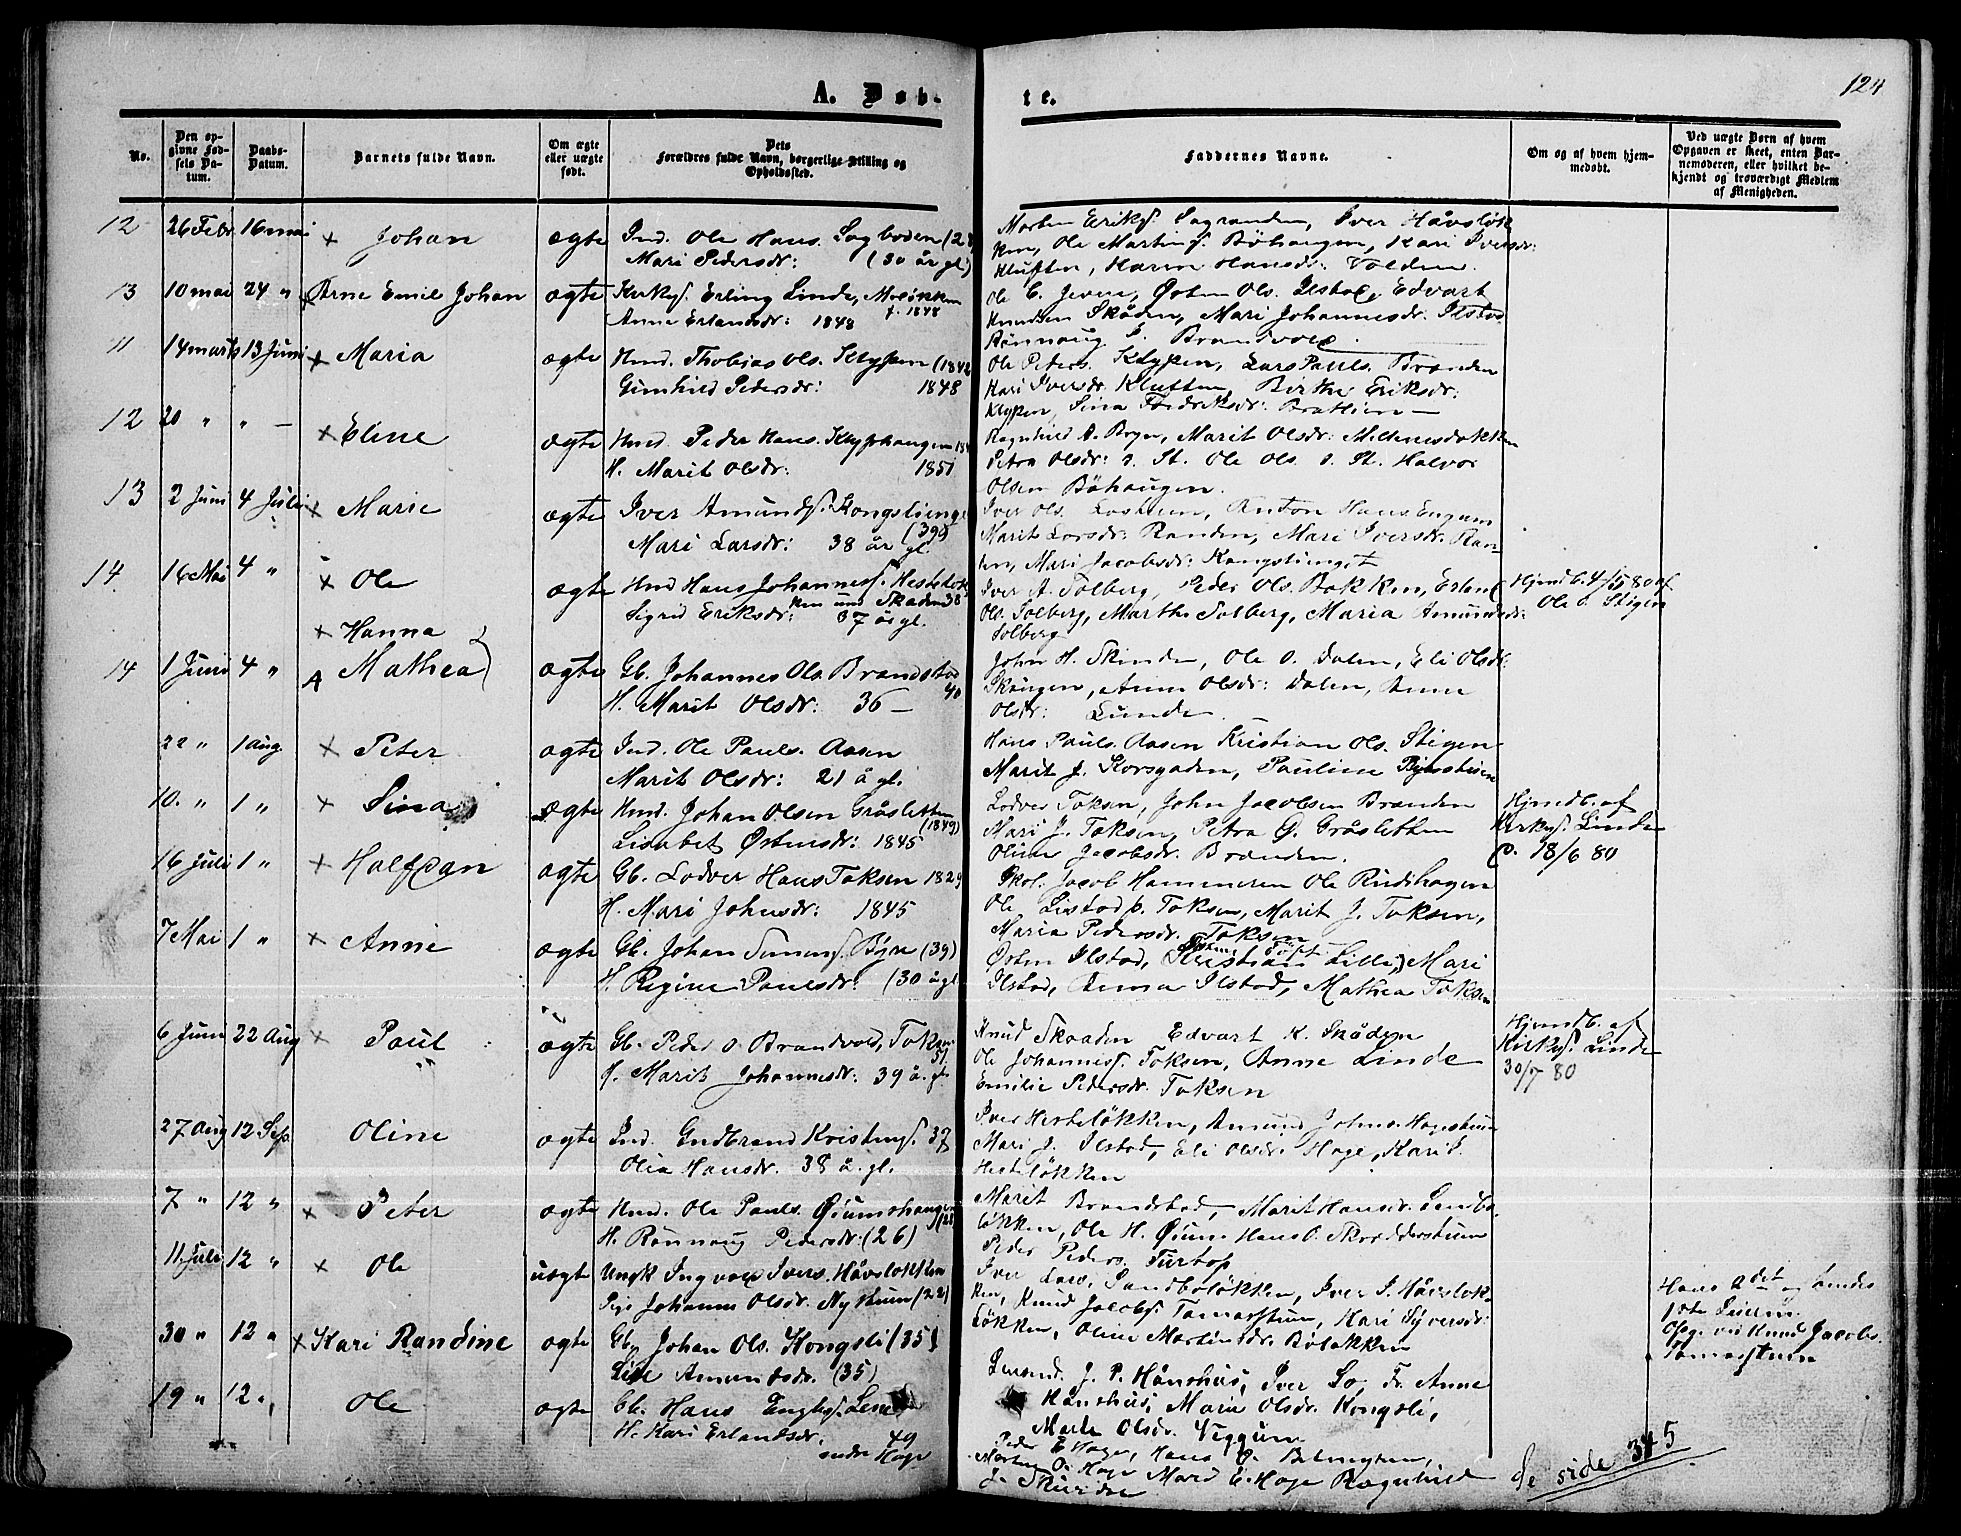 A. Døb-
te.
124
No.
Den op-
givne Fød-
sels Da-
tum.
Daabs-
Datum.
Barnets fulde Navn.
Om ægte
eller uægte
født.
Dets
Forældres fulde Navn, borgerlige Stilling og
Opholdssted.
Faddernes Navne.
Om og af hvem hjem-
medøbt.
Ved uægte Børn af hvem
Opgaven er skeet, enten Bar-
nemoderen, eller hvilket be-
kjendt og troværdigt Medlem
af Menigheden.
12 26 Febr 16 mai × Johan ægte Ind. Ole Hans. Sagboden (28
Mari Pedersdr: (30 år gl)
Morten Eriks. Sagranden, Iver Håvsløk
ken, Ole Martins. Bøhaugen, Kari Iversdr:
Kluften, Karen Hansdr: Volden.
13 10 mai 24 " Arne Emil Johan ægte Kirkes. Erling Linde, Moløkken
f. 1848
Anne Erlandsdr: 1848
Ole E. Jevne, Østen Ols. Ilstad, Edvart
Knudsen Skåden, Mari Johannesdr. Ilstad
Rønnaug I. Brandvold.
11 14 marts 13 Juni × Maria ægte Hmd. Thobias Ols. Klypen (1842
Gunhild Pedersdr: 1848
Ole Peders. Klypen, Lars Pauls. Brænden
Kari Iversdr Kluften, Berthe Eriksdr:
Klypen, Sina Fredriksdr: Bratlien —
12 20 " " — × Eline ægte Hmd. Peder Hans. Klyphaugen
H. Marit Olsdr: 1851
Ragnhild A. Bryn, Marit Olsdr:
Petra Olsdr: s. St. Ole Ols. s. St. Halvor
Olsen Bøhaugen.
13 2 Juni 4 Juli × Marie ægte Iver Amunds. Kongslienget
(39)
Mari Larsdr: 38 år gl.
Iver Ols. Anton Hans Engum
Marit Larsdr: Randen, Mari Iversdr. Ran-
den, Mari Jacobsdr: Kongslienget
14. 16 Mai 4 " × Ole ægte Hmd Hans Johannes. Hesteløk
ken und Skaden 38
Sigrid Eriksdr: 37 år gl.
Iver A. Solberg, Peder Ols. Bakken, Erland
Ols. Solberg, Marthe Solberg, Maria Amundsdr:
Solberg
Hjemdb. 4/5 80 af
Ole O. Stigen
× Hanna }
14 1 Juni 4 " A Mathea ægte Gb. Johannes Ols. Brandstad
40
H. Marit Olsdr: 36 —
John H. Skinde, Ole O. Dalen, Eli Olsdr:
Skaugen, Anne Olsdr: Dalen, Anne
Olsdr: Lunde.
22 " 1 Aug × Peter ægte Ind. Ole Pauls. Aasen
Marit Olsdr: 21 å gl.
Hans Pauls. Aasen Kristian Ols. Stigen
Marit J. Korsgaden, Pauline
10. " 1 " × Sina ægte Hmd. Johan Olsen Gråsletten
(1849)
Lisabet Østensdr: 1845
Lodver Toksen, John Jacobsen Brænden
Mari J. Toksen, Petra O. Gråsletten
Oline Jacobsdr. Brænden.
Hjemdb. af
Kirkes. Linde
d. 18/6 80
16 Juli 1 " × Halfdan ægte Gb. Lodver Hans Toksen 1829
H. Mari Johnsdr: 1845
Skol. Jacob Hammeren Ole Rudshagen
Ole Listad p. Toksen, Marit J. Toksen,
Maria Pedersdr. Toksen
7 Mai 1 " × Anne ægte Gb. Johan Simens. Byre (39)
H. Regine Paulsdr: (30 å gl
Østen Ilstad, Kristian Lille, Mari
Ilstad, Anna Ilstad, Mathea Toksen
6 Juni 22 Aug × Paul ægte Gb. Peder O. Brandvold, Toksen
51.
H. Marit Johannesdr: 39 å. gl.
Knud Skaaden Edvart K. Skåden
Ole Johannes. Toksen, Anne Linde
Emilie Pedersdr. Toksen
Hjemdb. af
Kirkes. Linde
30/7 80
27 Aug 12 Sep. Oline ægte Ind. Gudbrand Kristens. 37
Olia Hansdr. 38 å. gl.
Iver Hesteløkken, Amund Johns. Hagestuen
Mari J. Ilstad, Eli Olsdr. Hage, Kari I.
Hesteløkken
7 " 12 " × Peter ægte Hmd. Ole Pauls. Øiumshaugen
(28
H. Rønnaug Pedersdr: (26)
Marit Brandstad, Marit Hansdr. Sandbo-
løkken, Ole H. Øium Hans O. Skredderstuen
Peder Peders. Furtop
11. Juli 12 " × Ole uægte Ungk Ingvald Ivers. Håvsløkken
Pige Johanne Olsdr. Nystuen (22)
Iver Lars. Sandboløkken, Iver I. Håvsløk-
ken, Knud Jacobs. Tamarstuen, Kari Syversdr:
løkken, Oline Mortensdr. Bøløkken
Hans 2det og hendes
1ste Leierm.
Opg. ved Knud Jacobs.
Tamarstuen
30 " 12 " × Kari Randine ægte Gb. Johan Ols. Kongsli (35)
Lise Amundsdr. (35)
Lensmd. J. P. Hånshus, Iver Lo, Fr. Anne
Hånshus, Marie Olsdr. Kongsli,
Marte Olsdr. Viggum
19 " 12 " Ole ægte Gb. Hans Engebs.
H. Kari Erlandsdr. 49
nedre Hage
Peder E Hage, Hans
Morten O. Hage Mari E. Hage Ragnhild
J. Skinde
Se side 345